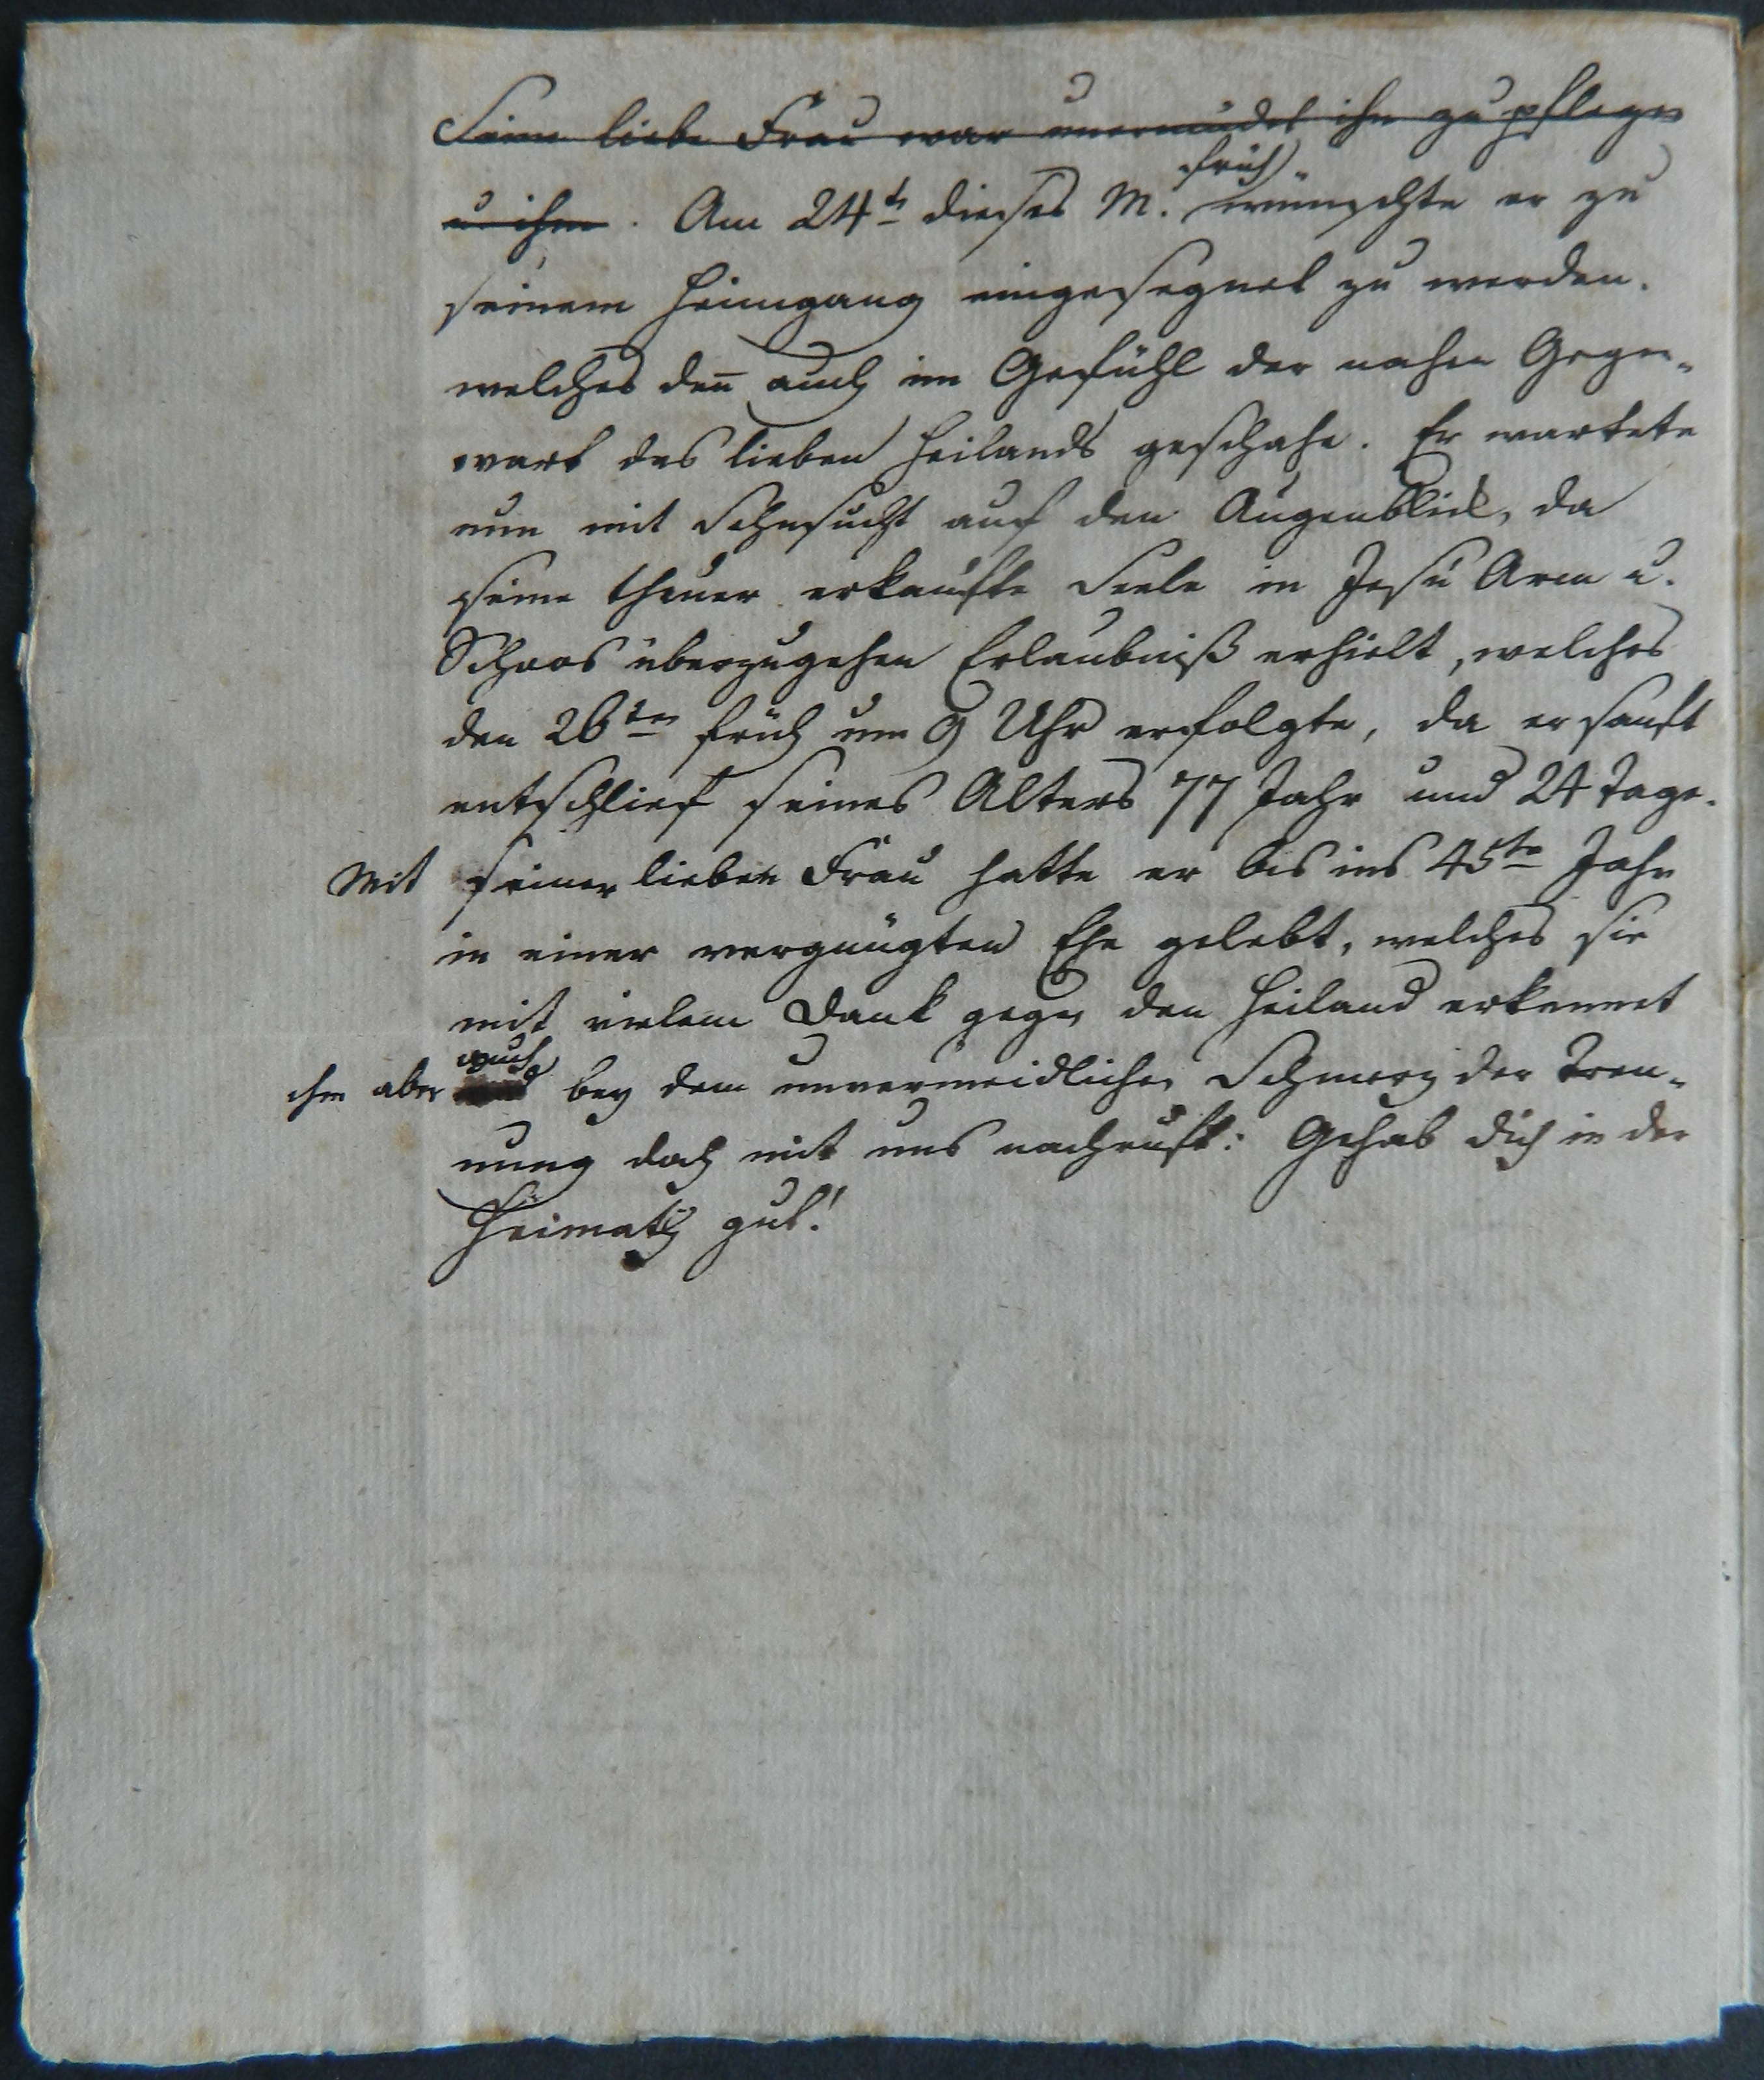 Seine liebe Frau war unermüdet ihn zu pflegen
u. ihm. Am 24t dieses M. früh wünschte er zu
seinem Heimgang eingesegnet zu werden.
welches den̄ auch im Gefühl der nahen Gegen-
wart des lieben Heilands geschahe. Er wartete
nun mit Sehnsucht auf den Augenblick, da
seine theuer erkaufte Seele in Jesu Arm u.
Schoos überzugehen Erlaubniß erhielt, welches
den 26ten früh um 9 Uhr erfolgte, da er sanft
entschlief seines Alters 77 Jahr und 24 Tage.
Mit seiner lieben Frau hatte er bis ins 45te Jahr
in einer vergnügten Ehe gelebt, welches sie
mit vielem Dank gegen den Heiland erkennet
ihm aber auch bey dem unvermeidlichen Schmerz der Tren-
nung doch mit uns nachruft: Gehab dich in der
Heimath gut!